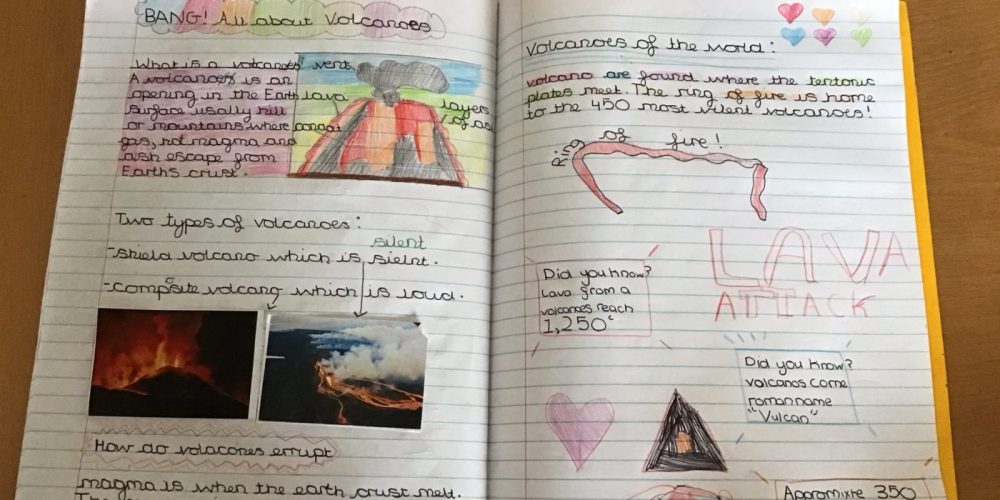 BANG! All about Volcanoes
What is a volcanoes'
A volcanoes is an
opening in the Earth
surface usally hill
or mountains where
gas, hot magma and
ash escape from
Earth's crust.
vent
lava
layers
of ash
Two types of volcanoes:
silent
-shield volcano which is sielnt.
o
-compsite volcano which is loud.
How do volacones errupt
magma is when the earth crust melt.
Volcanoes of the world:
volcano are found where the tentonic
plates meet. The ring of fire is home
to the 450 most vilent volcanoes!
Ring of fire!
LAVA
ATTACK
Did you know?
lava from a
volcanoes reach
1,250°c
Did you know?
volcanos come
roman name
"Vulcan"
Appromixtre 350